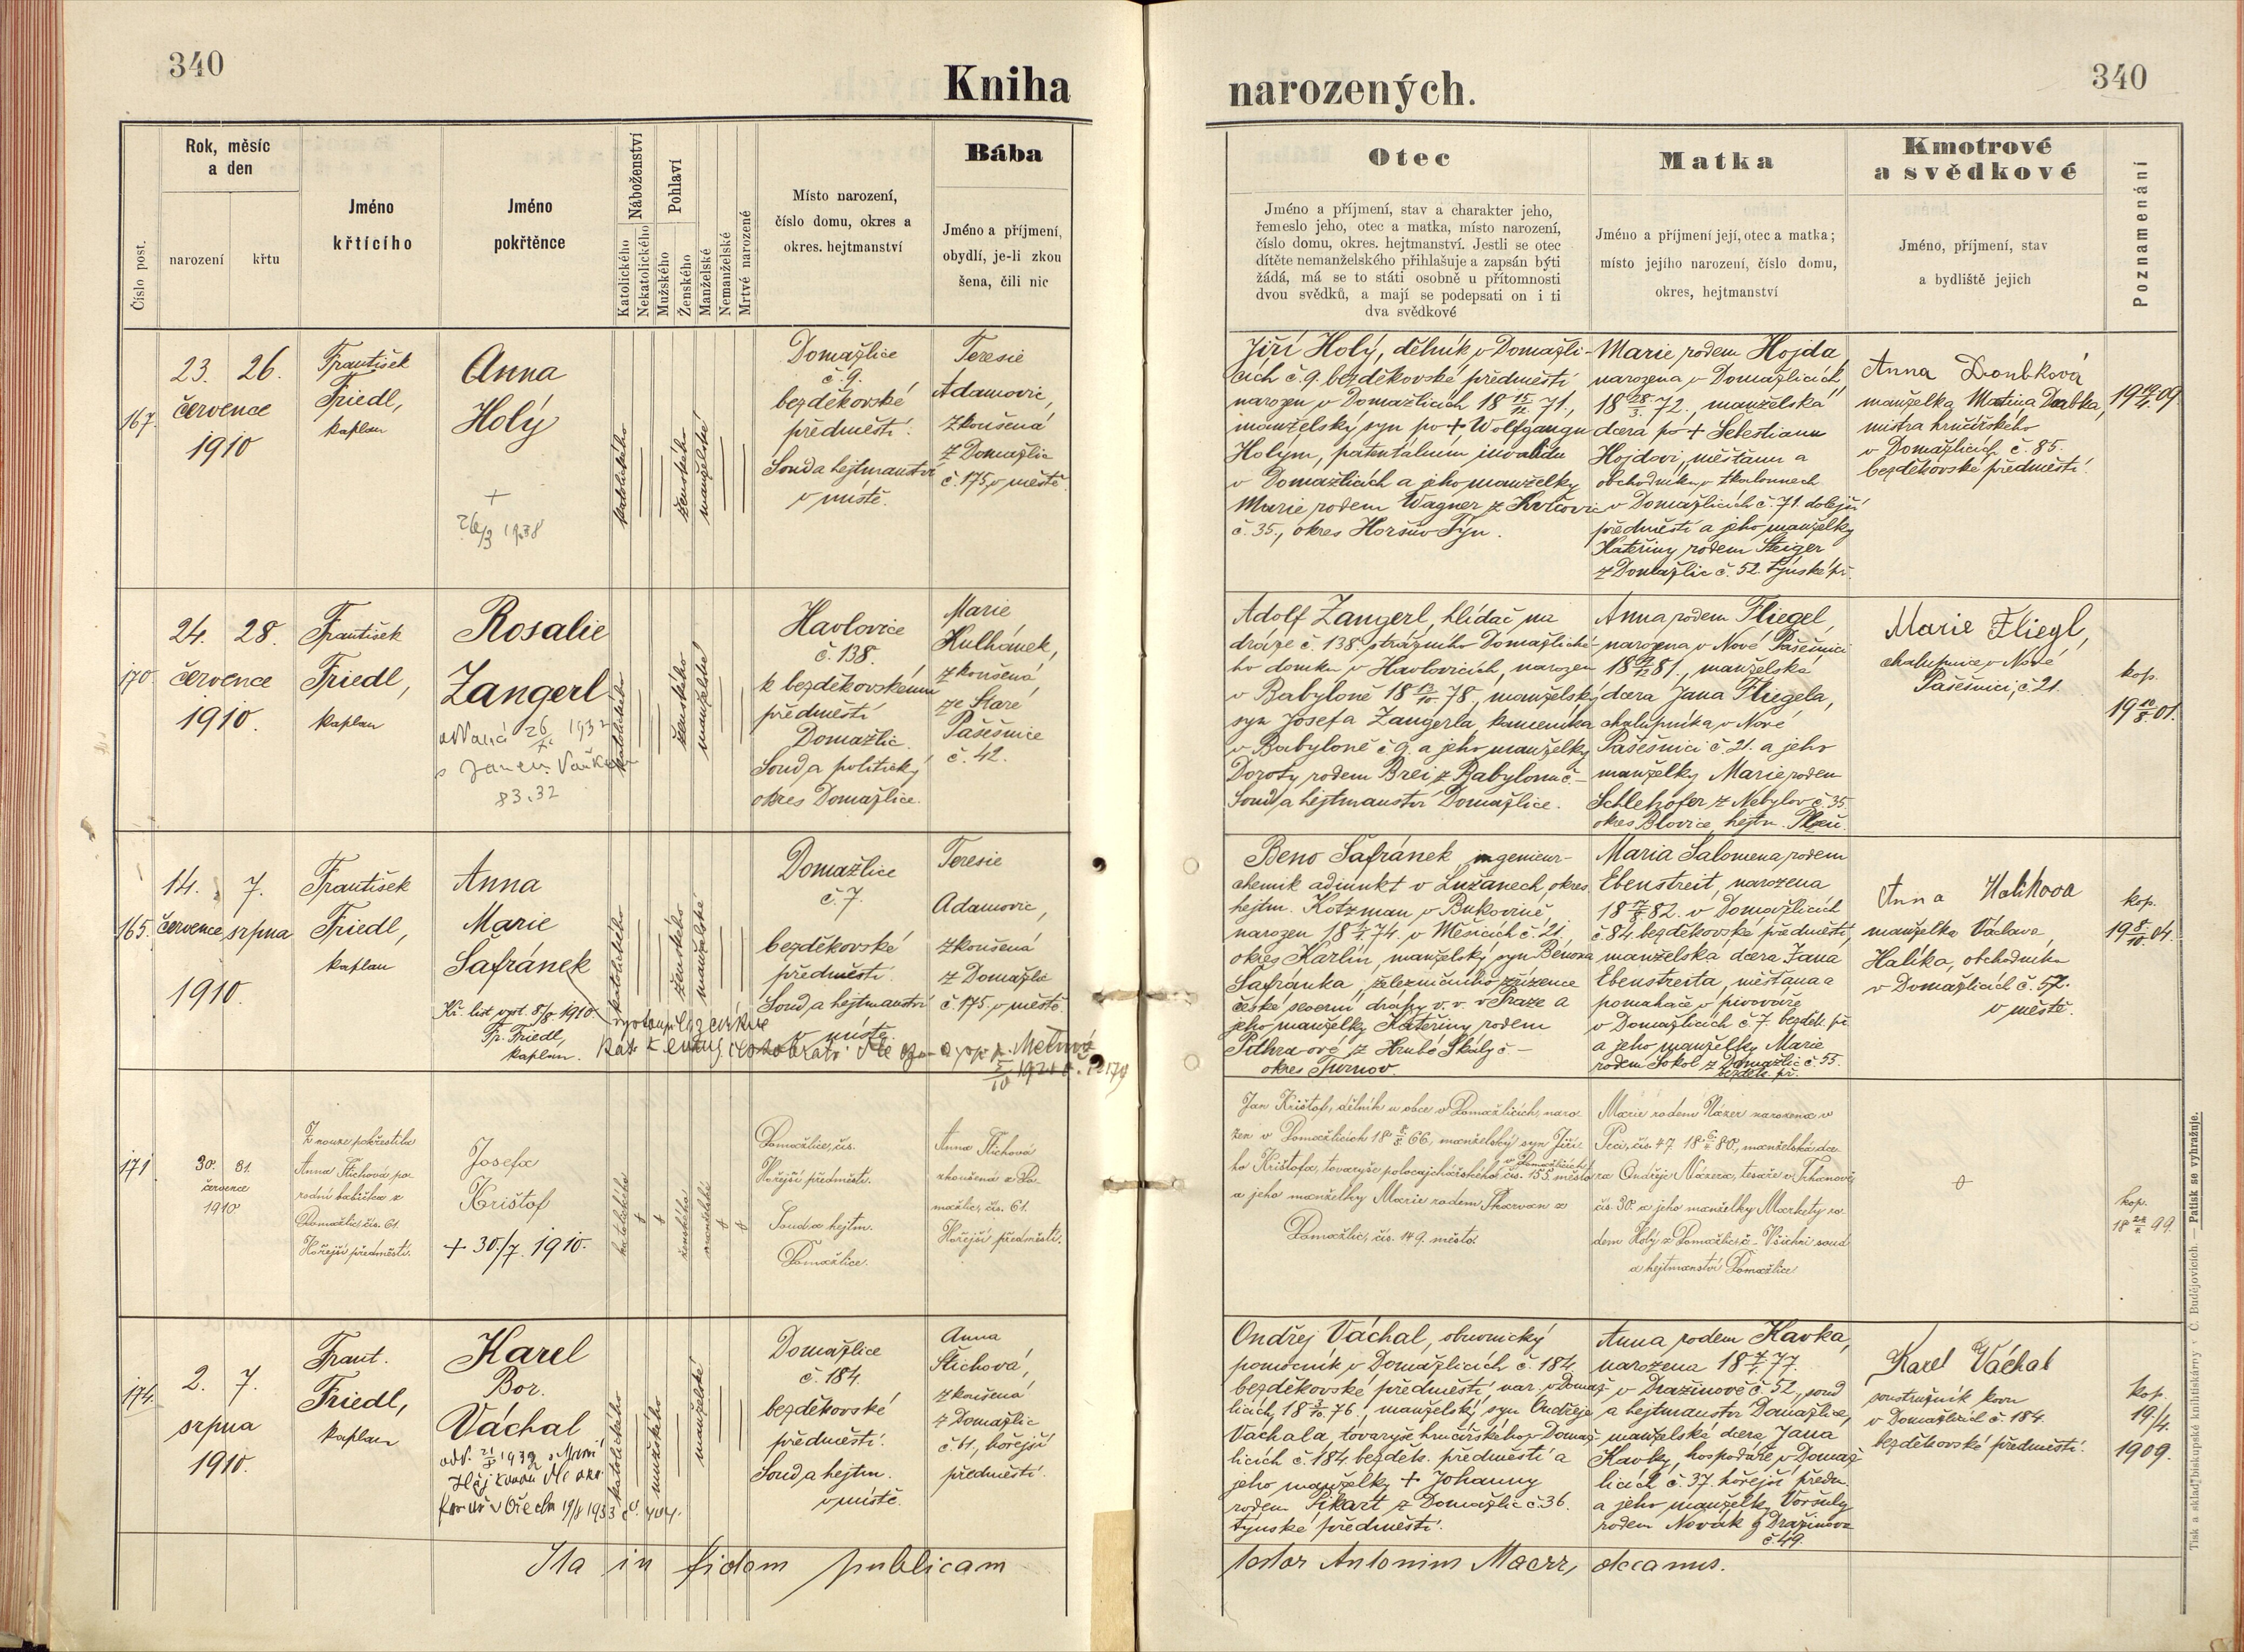 340
Kniha
narozených.
340
Číslo post.
Rok, měsíc
a den
narození
křtu
Jméno
křtícího
Jméno
pokřtěnce
Náboženství
Katolického
Nekatolického
Pohlaví
Mužského
Ženského
Manželské
Nemanželské
Mrtvě narozené
Místo narození,
číslo domu, okres a
okres. hejtmanství
Bába
Jméno a příjmení,
obydlí, je-li zkou
šena, čili nic
Otec
Jméno a příjmení, stav a charakter jeho,
řemeslo jeho, otec a matka, místo narození,
číslo domu, okres. hejtmanství. Jestli se otec
dítěte nemanželského přihlašuje a zapsán býti
žádá, má se to státi osobně u přítomnosti
dvou svědků, a mají se podepsati on i ti
dva svědkové
Matka
Jméno a příjmení její, otec a matka;
místo jejího narození, číslo domu,
okres, hejtmanství
Kmotrové
a svědkové
Jméno, příjmení, stav
a bydliště jejich
Poznamenání
167.
23. 26.
července
1910
František
Friedl,
kaplan
Anna
Holý
+
26/3 1938
katolického
ženského
manželské
Domažlice
č. 9.
bezděkovské
předměstí.
Soud a hejtmanství
v místě.
Teresie
Adamovic,
zkoušená
z Domažlic
č. 175, v městě.
Jiří Holý, dělník v Domažli-
cích č. 9. bezděkovské předměstí
narozen v Domažlicích 18 15/12. 71.,
manželský syn po + Wolfgangu
Holým, patentálním invalidu
v Domažlicích a jeho manželky
Marie rodem Wagner z Kvíčovic
č. 35., okres Horšův Týn.
Marie rodem Hojda,
narozena v Domažlicích
18 28/3. 72., manželská
dcera po + Šebestianu
Hojdovi, měšťanu a
obchodníku v tkalounech
v Domažlicích č. 71. dolejší
předměstí a jeho manželky
Kateřiny rodem Steiger
z Domažlic č. 52. týnské př.
Anna Doubková
manželka Matěje Doubka,
mistra hrnčířského
v Domažlicích č. 85.
bezděkovské předměstí.
170
24. 28.
července
1910.
František
Friedl,
kaplan
Rosalie
Zangerl
oddaná 26/XI 1932
s Janem
83.32
katolického
ženského
manželské
Havlovice
č. 138.
k bezděkovskému
předměstí
Domažlic.
Soud a politický
okres Domažlice.
Marie
Kulhánek,
zkoušená,
ze Staré
Pašešnice
č. 42.
Adolf Zangerl, hlídač na
dráze č. 138. strážního Domažlické-
ho domku v Havlovicích, narozen
v Babyloně 18 13/10. 78., manželský
syn Josefa Zangerla, kameníka
v Babyloně č. 9. a jeho manželky
Doroty rodem Brei z Babylonu č –
Soud a hejtmanství Domažlice.
Anna rodem Fliegel,
narozena v Nové Pašešnici
1881., manželská
dcera Jana Fliegela,
chalupníka, v Nové
Pašešnici č. 21. a jeho
manželky Marie rodem
Schlehofer z Nebylov č. 35.
okres Blovice, hejtm. Plzeň.
Marie Fliegl,
chalupnice v Nové
Pašešnici, č. 21.
kop.
19 10/8. 01.
165.
14. 7.
července, srpna
1910.
František
Friedl,
kaplan
Anna
Marie
Šafránek
Kř. list vyst. 8/8. 1910.
Fr. Friedl,
kaplan.
vystoupila z církve
katolického
ženského
manželské
Domažlice
č. 7.
bezděkovské
předměstí.
Soud a hejtmanství
v místě.
Teresie
Adamovic,
zkoušená
z Domažlic
č. 175, v městě.
Beno Šafránek, ingenieur-
chemik adjunkt v Lužanech, okres
hejtm. Kotzman v Bukovině,
narozen 1874. v Měšicích č. 21.
okres Karlín, manželský syn Benona
Šafránka, železničního zřízence
české severní dráhy v. v. v Praze a
jeho manželky Kateřiny rodem
z Hrubé Skály č –
okres Turnov
Maria Salomena rodem
Ebenstreit, narozena
1882. v Domažlicích
č. 84. bezděkovské předměstí,
manželská dcera Jana
Ebenstreita, měšťana a
pomahače v pivováře
v Domažlicích č. 7. bezděk. př.
a jeho manželky Marie
rodem Sokol z Domažlic č. 55.
bezděk. př.
Anna Halíková
manželka Václava
Halíka, obchodníka
v Domažlicích č. 57.
v městě.
kop.
19 8/10. 04.
171
30. 31.
července
1910
Z nouze pokřestila
Anna Štichová po-
rodní babička z
Domažlic, čís. 61.
Hořejší předměstí.
Josefa
Krištof
+ 30./7. 1910.
katolického
ženského
manželské
Domažlice, čís.
Hořejší předměstí.
Soud a hejtm.
Domažlice.
Anna Štichová
zkoušená z Do-
mažlic, čís. 61.
Hořejší předměstí.
Jan Krištof, dělník u obce v Domažlicích, naro-
zen v Domažlicích 18 8/8. 66, manželský syn Jiří-
ho Krištofa, tovaryše v Domažlicích čís. 155. město
a jeho manželky Marie rodem Skarvan z
Domažlic, čís. 149. město.
Marie rodem Názer narozena v
Peci, čís. 47. 1880., manželská dce-
ra Ondřeje Názera, tesaře v Trhanově
čís. 30. a jeho manželky Markéty ro-
dem Holý z Domažlic, č – Všichni soud
a hejtmanství Domažlice.
kop.
1899.
174.
2. 7.
srpna
1910.
Frant.
Friedl,
kaplan
Karel
Bor.
Váchal
katolického
mužského
manželské
Domažlice
č. 184.
bezděkovské
předměstí.
Soud a hejtm.
v místě.
Anna
Štichová,
zkoušená
z Domažlic
č. 61., hořejší
předměstí.
Ondřej Váchal, obuvnický
pomocník v Domažlicích č. 184.
bezděkovské předměstí, nar. v Domaž-
licích, 1876., manželský syn Ondřeje
Váchala, tovaryše hrnčířského v Domaž-
licích č. 184 bezděk. předměstí a
jeho manželky + Johanny
rodem Pikart z Domažlic č. 36.
týnské předměstí.
Anna rodem Kavka,
narozena 1877.
v Dražinově č. 52., soud
a hejtmanství Domažlice,
manželská dcera Jana
Kavky, hospodáře v Domaž-
licích č. 37. hořejší předm.
a jeho manželky Voršuly
rodem Novák z Dražinova
č. 49.
Karel Váchal
soustružník kovu
v Domažlicích č. 184.
bezděkovské předměstí.
kop.
19./4.
1909.
Ita in fidem publicam
testor Antonius Maerz, decanus.
Tisk a sklad biskupské knihtiskárny v Č. Budějovicích. — Patisk se vyhražuje.